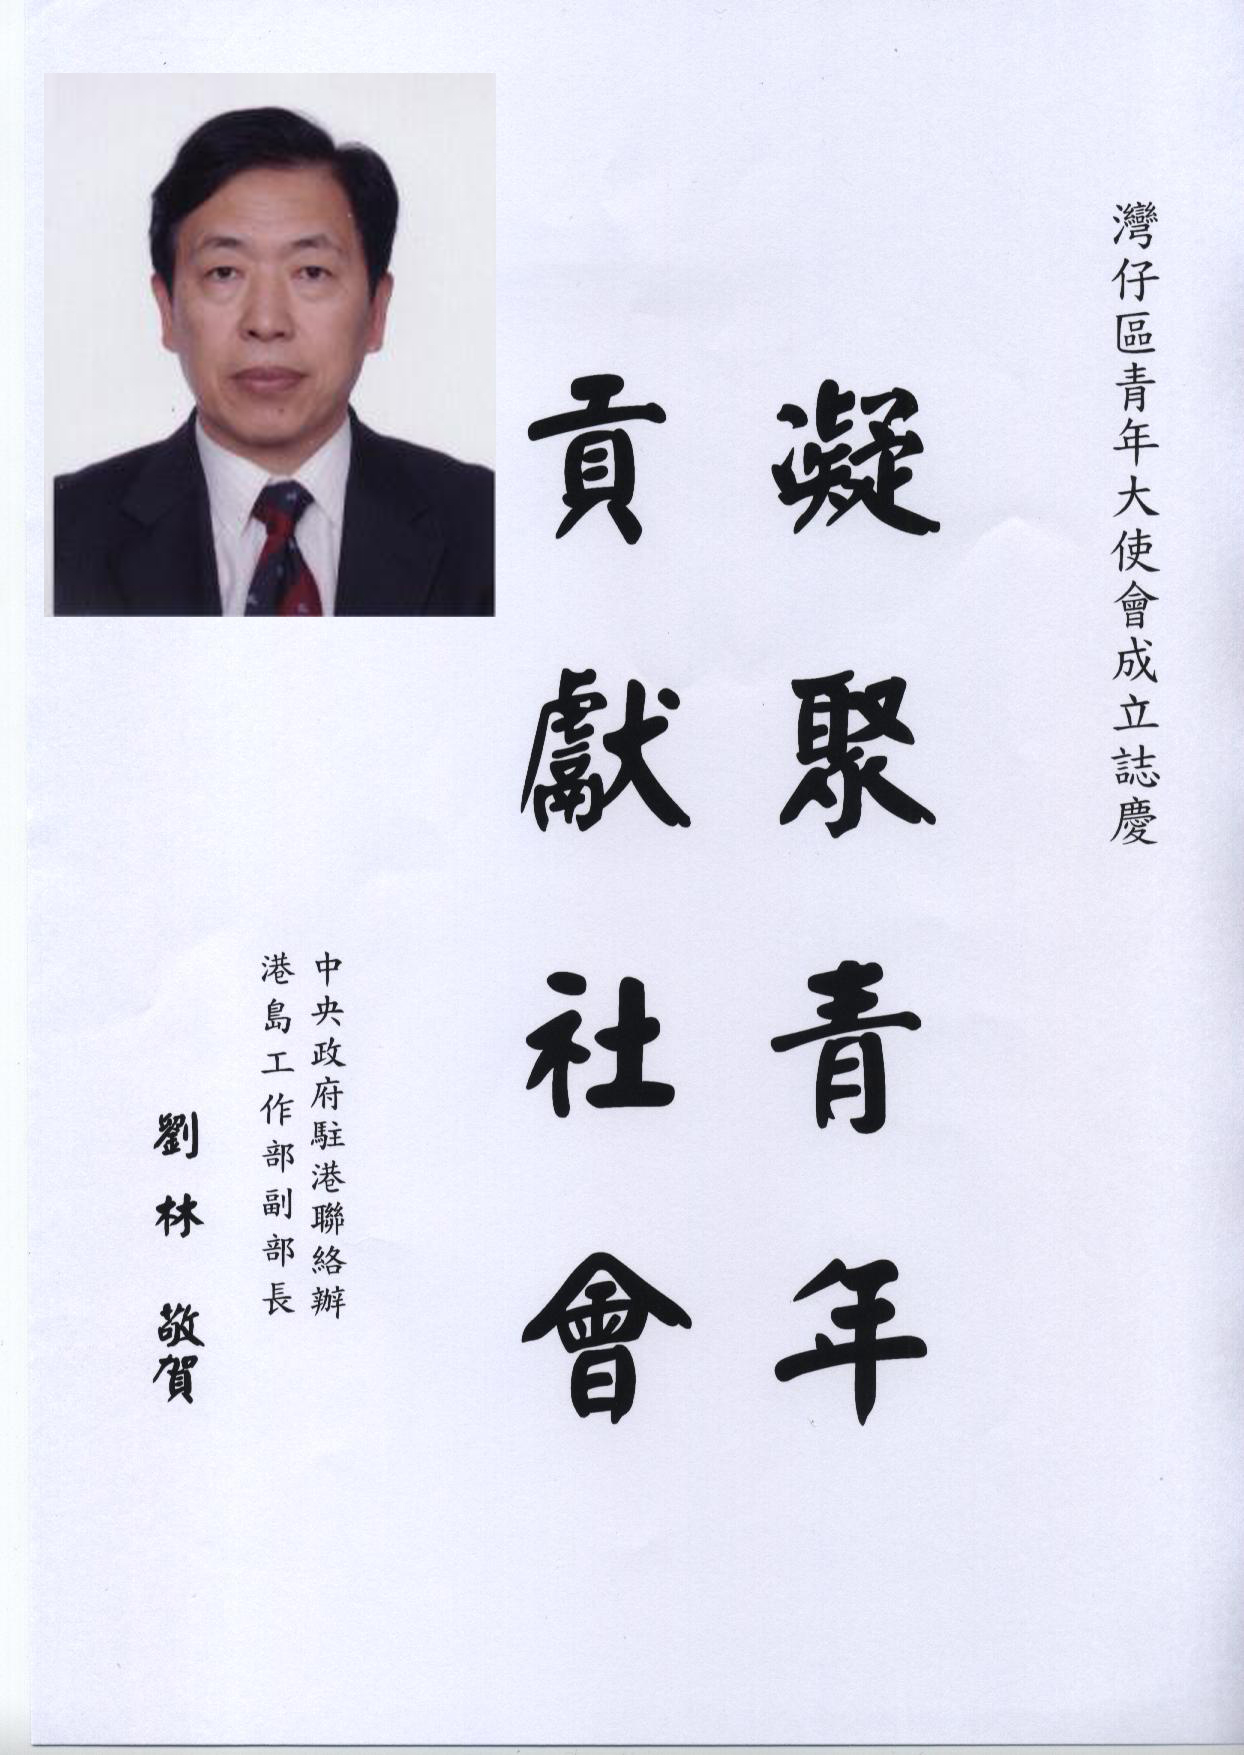 灣仔區青年大使會成立誌慶
凝聚青年
貢獻社會
中央政府駐港聯絡辦
港島工作部副部長
劉林 敬賀